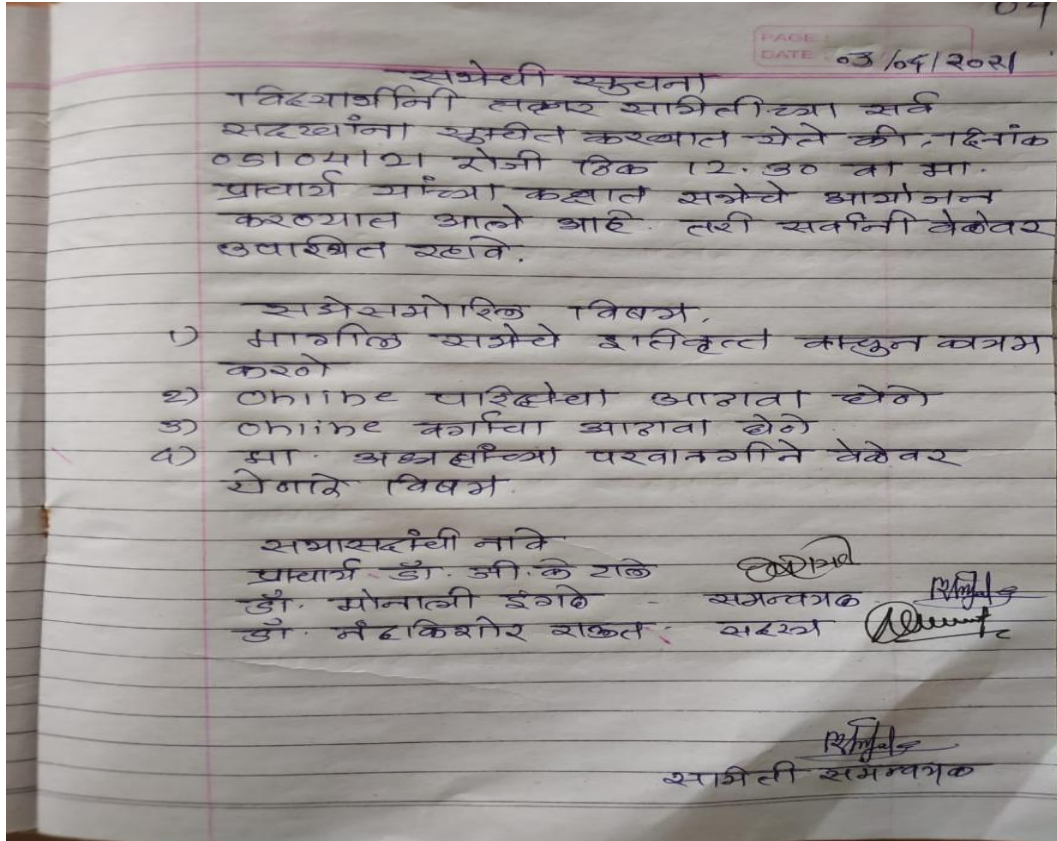 04
PAGE :
DATE : ०३/०४/२०२१
सभेची सुचना
विद्यार्थीनी तक्रार समितीच्या सर्व
सदस्यांना सुचीत करण्यात येते की, दिनांक
०५।०४।२१ रोजी ठिक १२.३० वा मा.
प्राचार्य यांच्या कक्षात सभेचे आयोजन
करण्यात आले आहे. तरी सर्वांनी वेळेवर
उपास्थित रहावे.
सभेसमोरिल विषय,
१) मागील सभेचे इतिवृत्त वाचुन कायम
करणे
२) online परिक्षेचा आढावा घेणे
३) online वर्गाचा आढावा घेणे
४) मा. अध्यक्षांच्या परवानगीने वेळेवर
येणारे विषय.
सभासदांची नावे
प्राचार्य डॉ. जी. के
डॉ. मोनाली इंगळे - समन्वयक
डॉ. नंदकिशोर राऊत - सदस्य
समिती समन्वयक